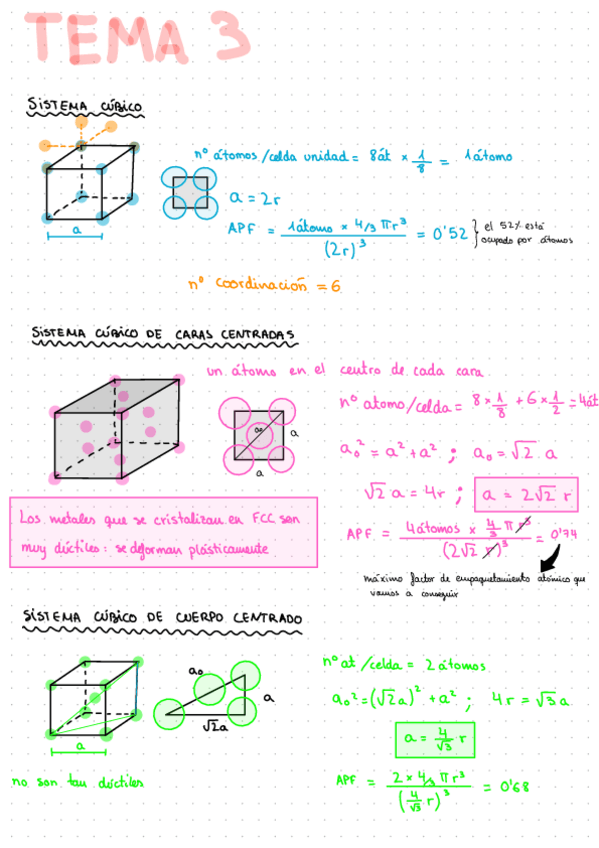 TEMA 3
SISTEMA CÚBICO
nº átomos/celda unidad = 8át × 1/8 = 1átomo
a = 2r
APF = 1átomo × 4/3 πr³ / (2r)³ = 0'52 } el 52% está
ocupado por átomos
a
nº coordinación = 6
SISTEMA CÚBICO DE CARAS CENTRADAS
un átomo en el centro de cada cara
nº atomo/celda = 8 × 1/8 + 6 × 1/2 = 4át
a₀
a
a
a₀² = a² + a² ; a₀ = √2 a
√2 a = 4r ; a = 2√2 r
Los metales que se cristalizan en FCC son
muy dúctiles: se deforman plásticamente
APF = 4átomos × 4/3 π r³ / (2√2 r)³ = 0'74
máximo factor de empaquetamiento atómico que
vamos a conseguir
SISTEMA CÚBICO DE CUERPO CENTRADO
nº at /celda = 2 átomos
a₀
a
√2a
a₀² = (√2a)² + a² ; 4r = √3a
a = 4/√3 r
a
no son tan dúctiles
APF = 2 × 4/3 π r³ / (4/√3 r)³ = 0'68